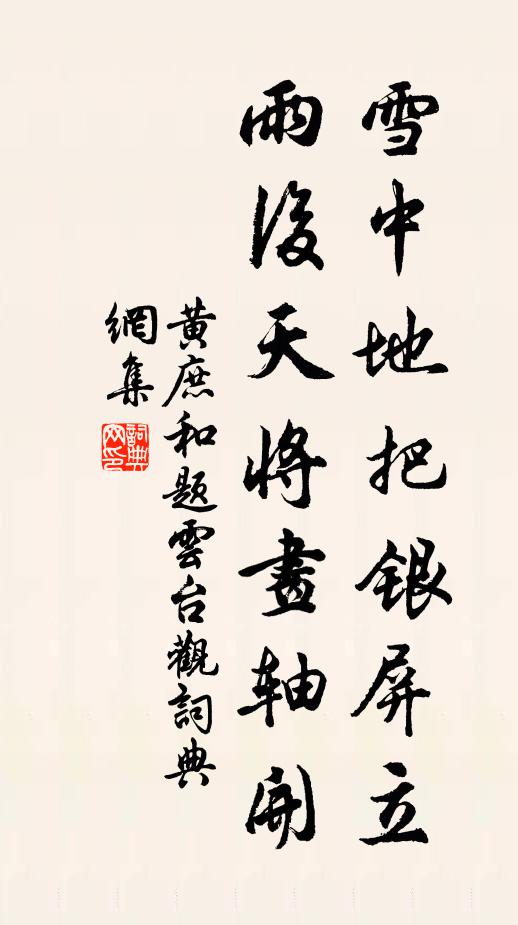 雪中地把银屏立
雨後天將畫轴開
黄庶和题雲台觀詞典
網集
詞典
网印